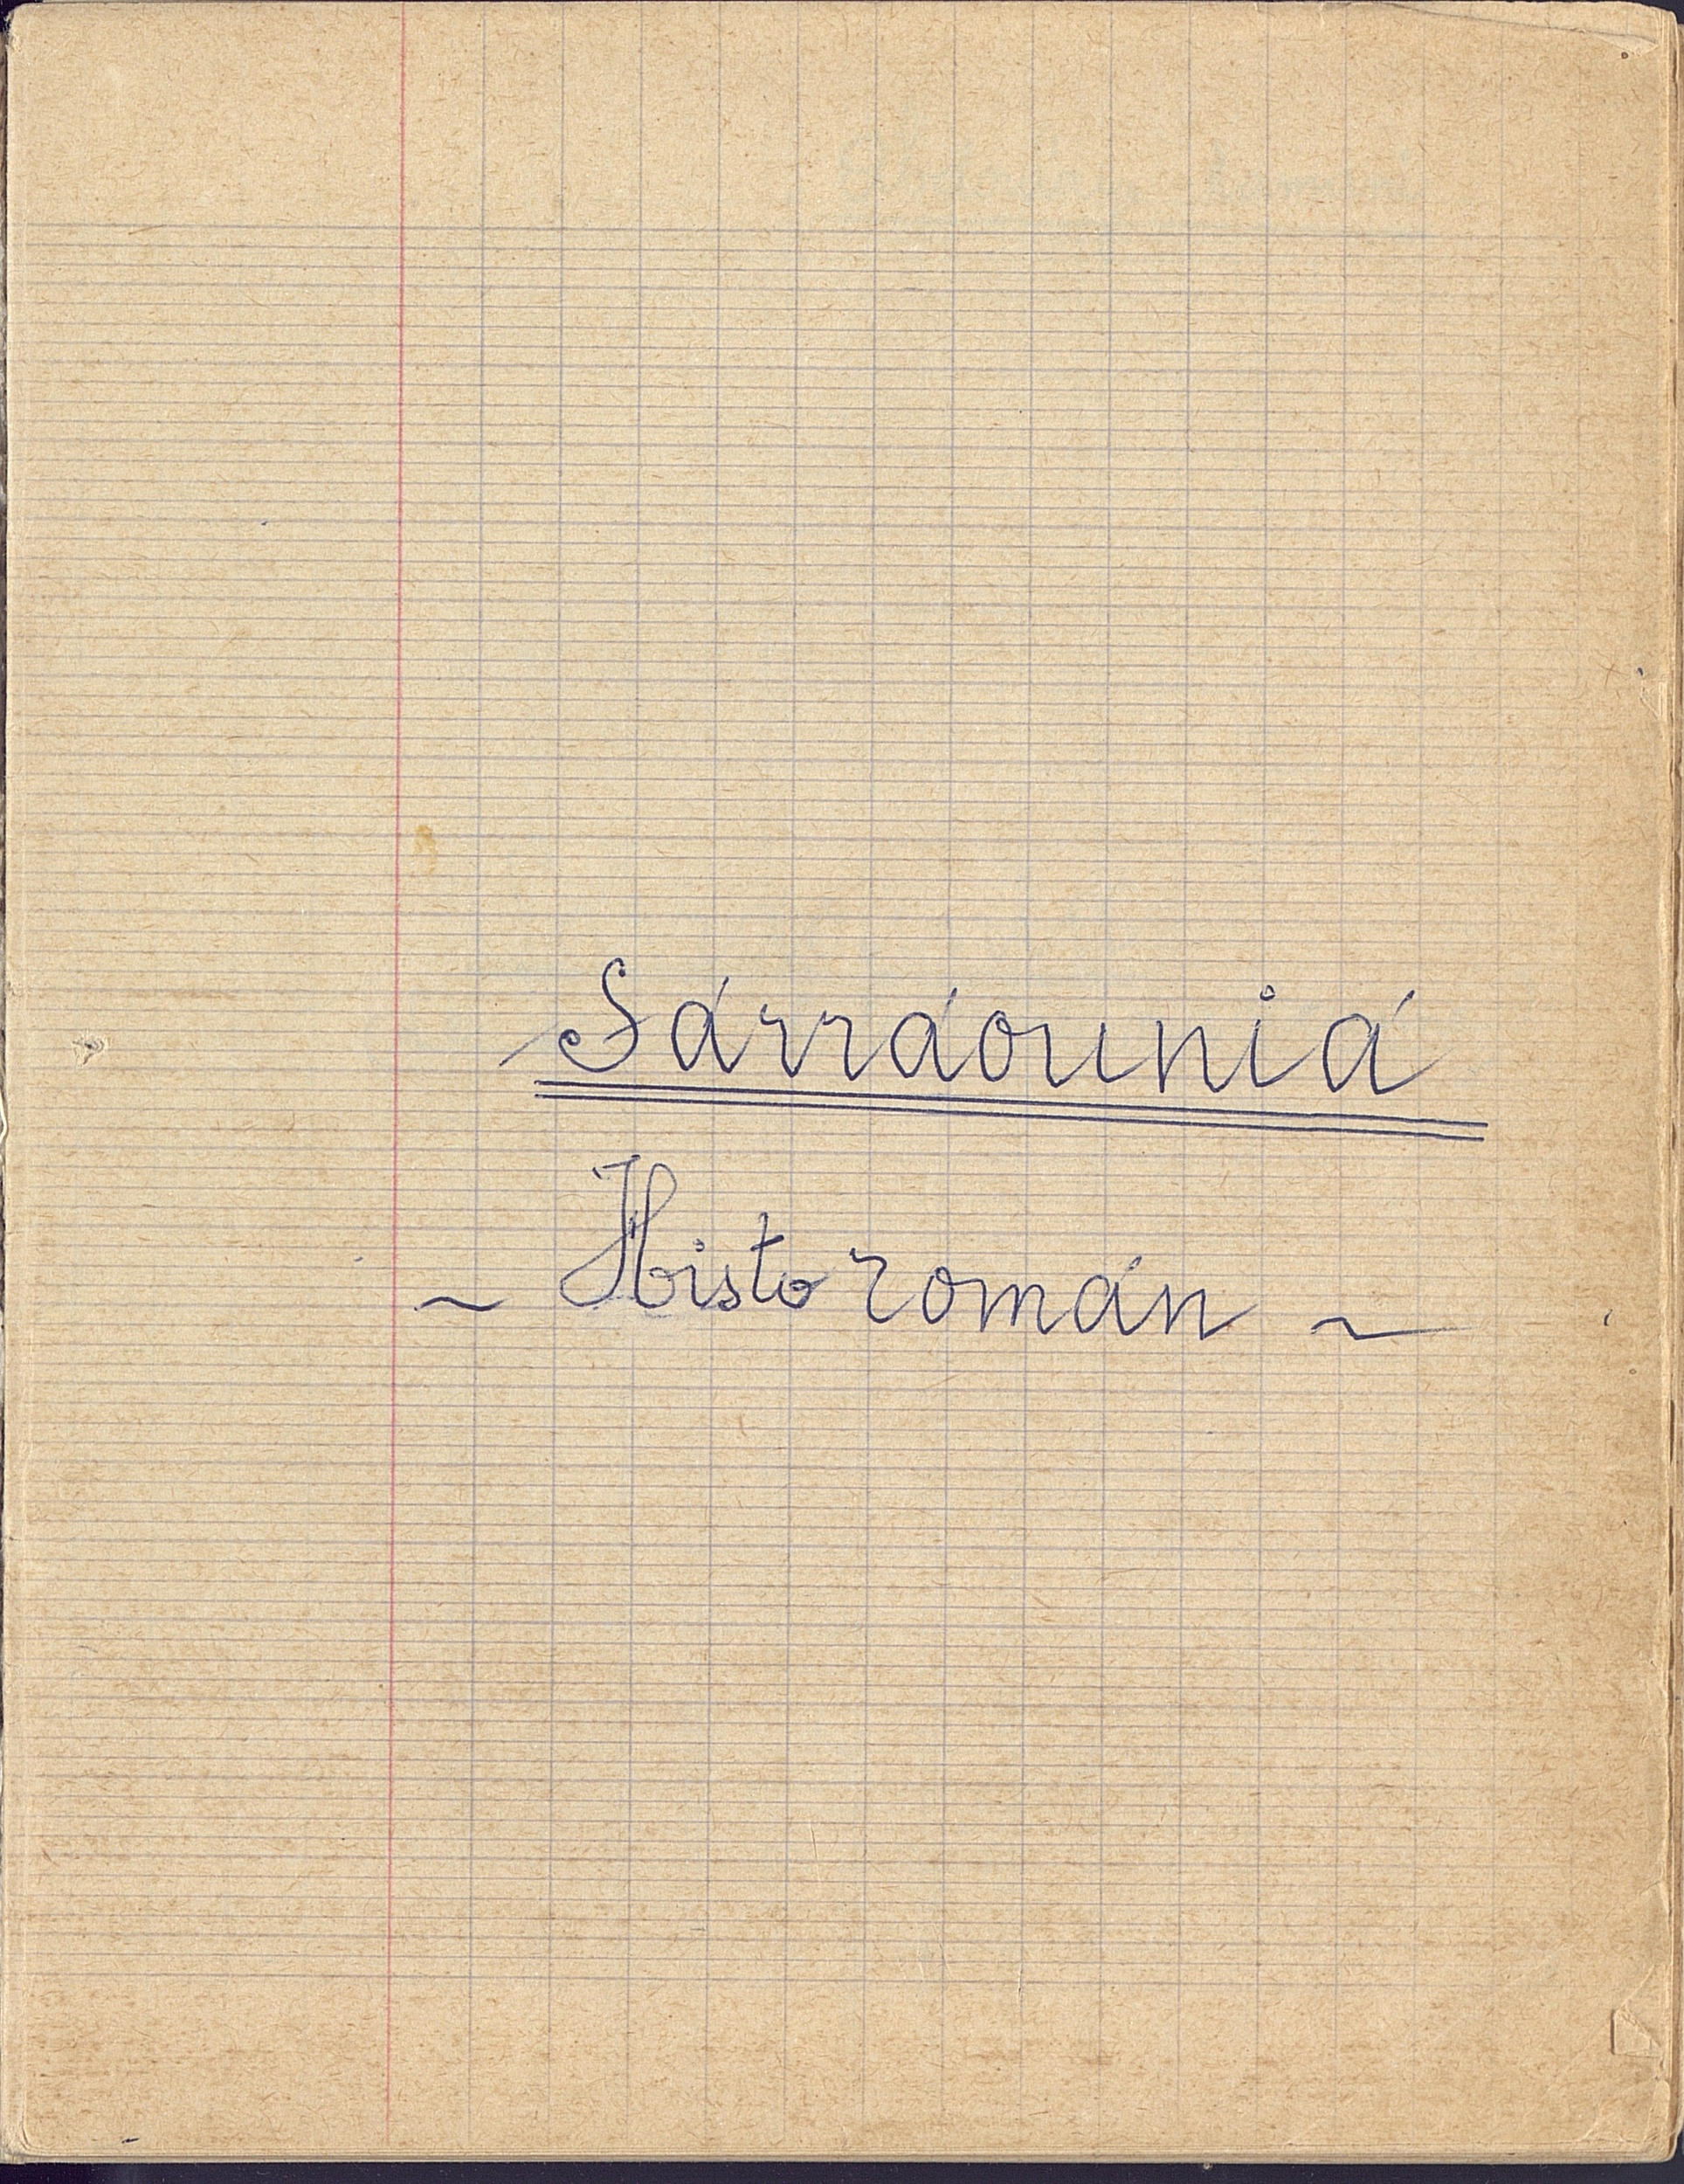 Sárráouniá
~ Histo román ~